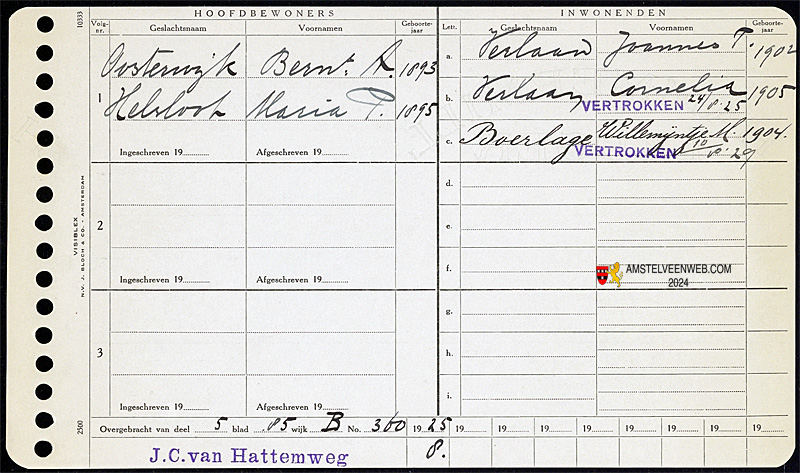 10333
HOOFDBEWONERS
Volg-nr. Geslachtsnaam Voornamen Geboorte-jaar
1
Oosterwijk Bernt. A. 1893
Helsloot Maria P. 1895
Ingeschreven 19 Afgeschreven 19
2
Ingeschreven 19 Afgeschreven 19
3
Ingeschreven 19 Afgeschreven 19
INWONENDEN
Lett. Geslachtsnaam Voornamen Geboorte-jaar
a. Verlaan Joannes T. 1902
b. Verlaan Cornelia 1905
VERTROKKEN 24/8.25
c. Boerlage Willemijntje M. 1904.
VERTROKKEN 10/8.29
d.
e.
f.
AMSTELVEENWEB.COM
2024
g.
h.
i.
Overgebracht van deel 5 blad 85 wijk B No. 360 19 25 19 19 19 19 19 19 19 19
8.
J.C.van Hattemweg
VISIBLEX
N.V. J. BLOCH & CO. - AMSTERDAM
2500